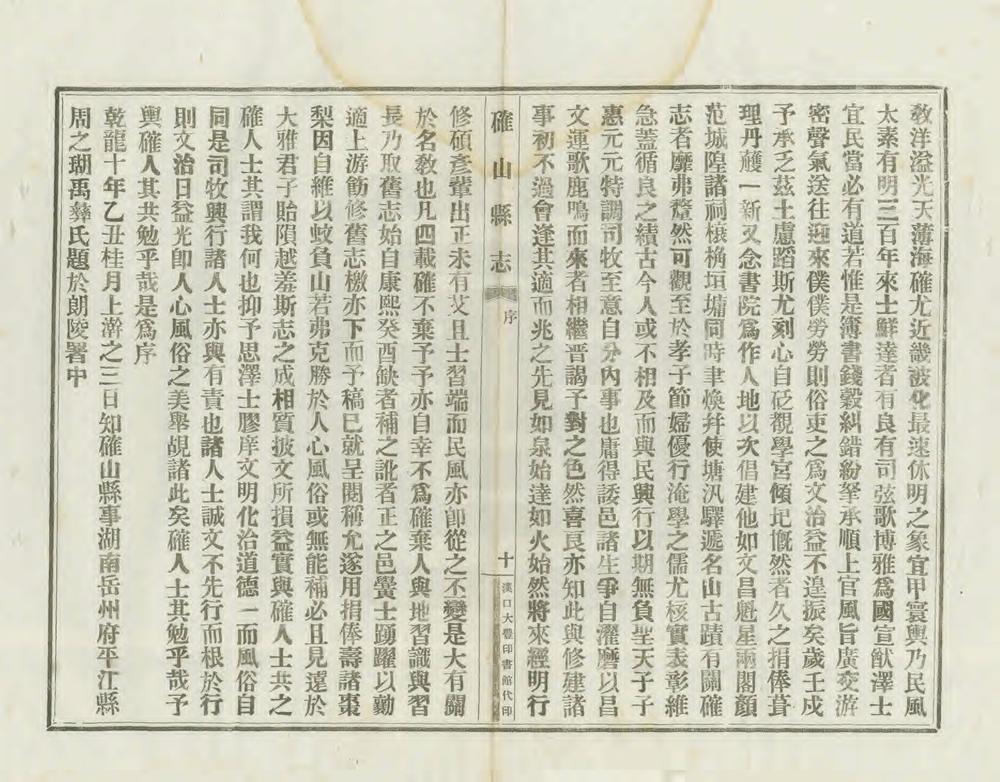 敎洋溢光天薄海確尤近畿被化最速休明之象宜甲寰輿乃民風
太素有明三百年來士鮮達者有良有司弦歌博雅爲國宣猷澤士
宜民當必有道若惟是簿書錢穀糾錯紛拏承順上官風旨廣交游
密聲氣送往迎來僕僕勞勞則俗吏之爲文治益不遑振矣歲壬戌
予承乏茲土慮蹈斯尤刻心自砭覩學宮傾圮慨然者久之捐俸葺
理丹雘一新又念書院爲作人地以次倡建他如文昌魁星兩閣顏
范城隍諸祠榱桷垣墉同時聿煥幷使塘汛驛遞名山古蹟有關確
志者靡弗犛然可觀至於孝子節婦優行淹學之儒尤核實表彰維
急蓋循良之績古今人或不相及而與民興行以期無負聖天子子
惠元元特調司牧至意自分內事也庸得諉邑諸生爭自濯磨以昌
文運歌鹿鳴而來者相繼晋謁予對之色然喜良亦知此與修建諸
事初不過會逢其適而兆之先見如泉始達如火始然將來經明行
確山縣志
序
十
漢口大豐印書館代印
修碩彥輩出正未有艾且士習端而民風亦卽從之丕變是大有關
於名敎也凡四載確不棄予予亦自幸不爲確棄人與地習識與習
長乃取舊志始自康熙癸酉缺者補之訛者正之邑黌士踴躍以勷
適上游飭修舊志檄亦下而予稿已就呈閱稱允遂用捐俸壽諸棗
梨因自維以蚊負山若弗克勝於人心風俗或無能補必且見遺於
大雅君子貽隕越羞斯志之成相質披文所損益實與確人士共之
確人士其謂我何也抑予思澤士膠庠文明化治道德一而風俗自
同是司牧興行諸人士亦與有責也諸人士誠文不先行而根於行
則文治日益光卽人心風俗之美舉覘諸此矣確人士其勉乎哉予
輿確人其共勉乎哉是爲序
乾龍十年乙丑桂月上澣之三日知確山縣事湖南岳州府平江縣
周之瑚禹彝氏題於朗陵署中